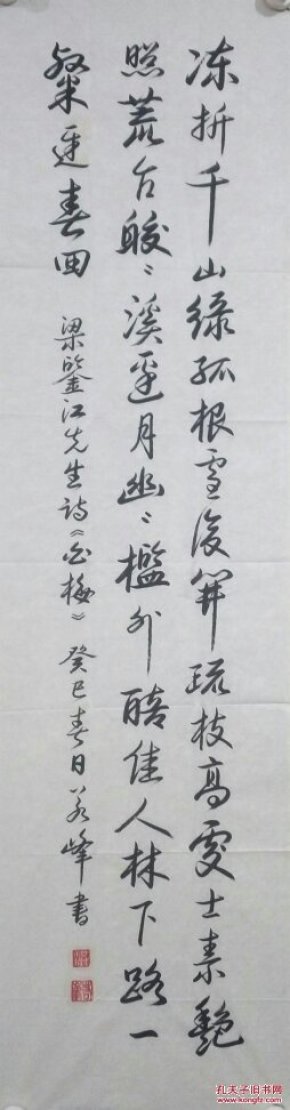 冻折千山绿孤根雪后开疏枝高处士素艳
照荒台皎〻溪边月幽〻槛外醅佳人林下路一
粲笑春回 梁鉴江先生诗《白梅》 癸巳春日若峰书
孔夫子旧书网
www.kongfz.com